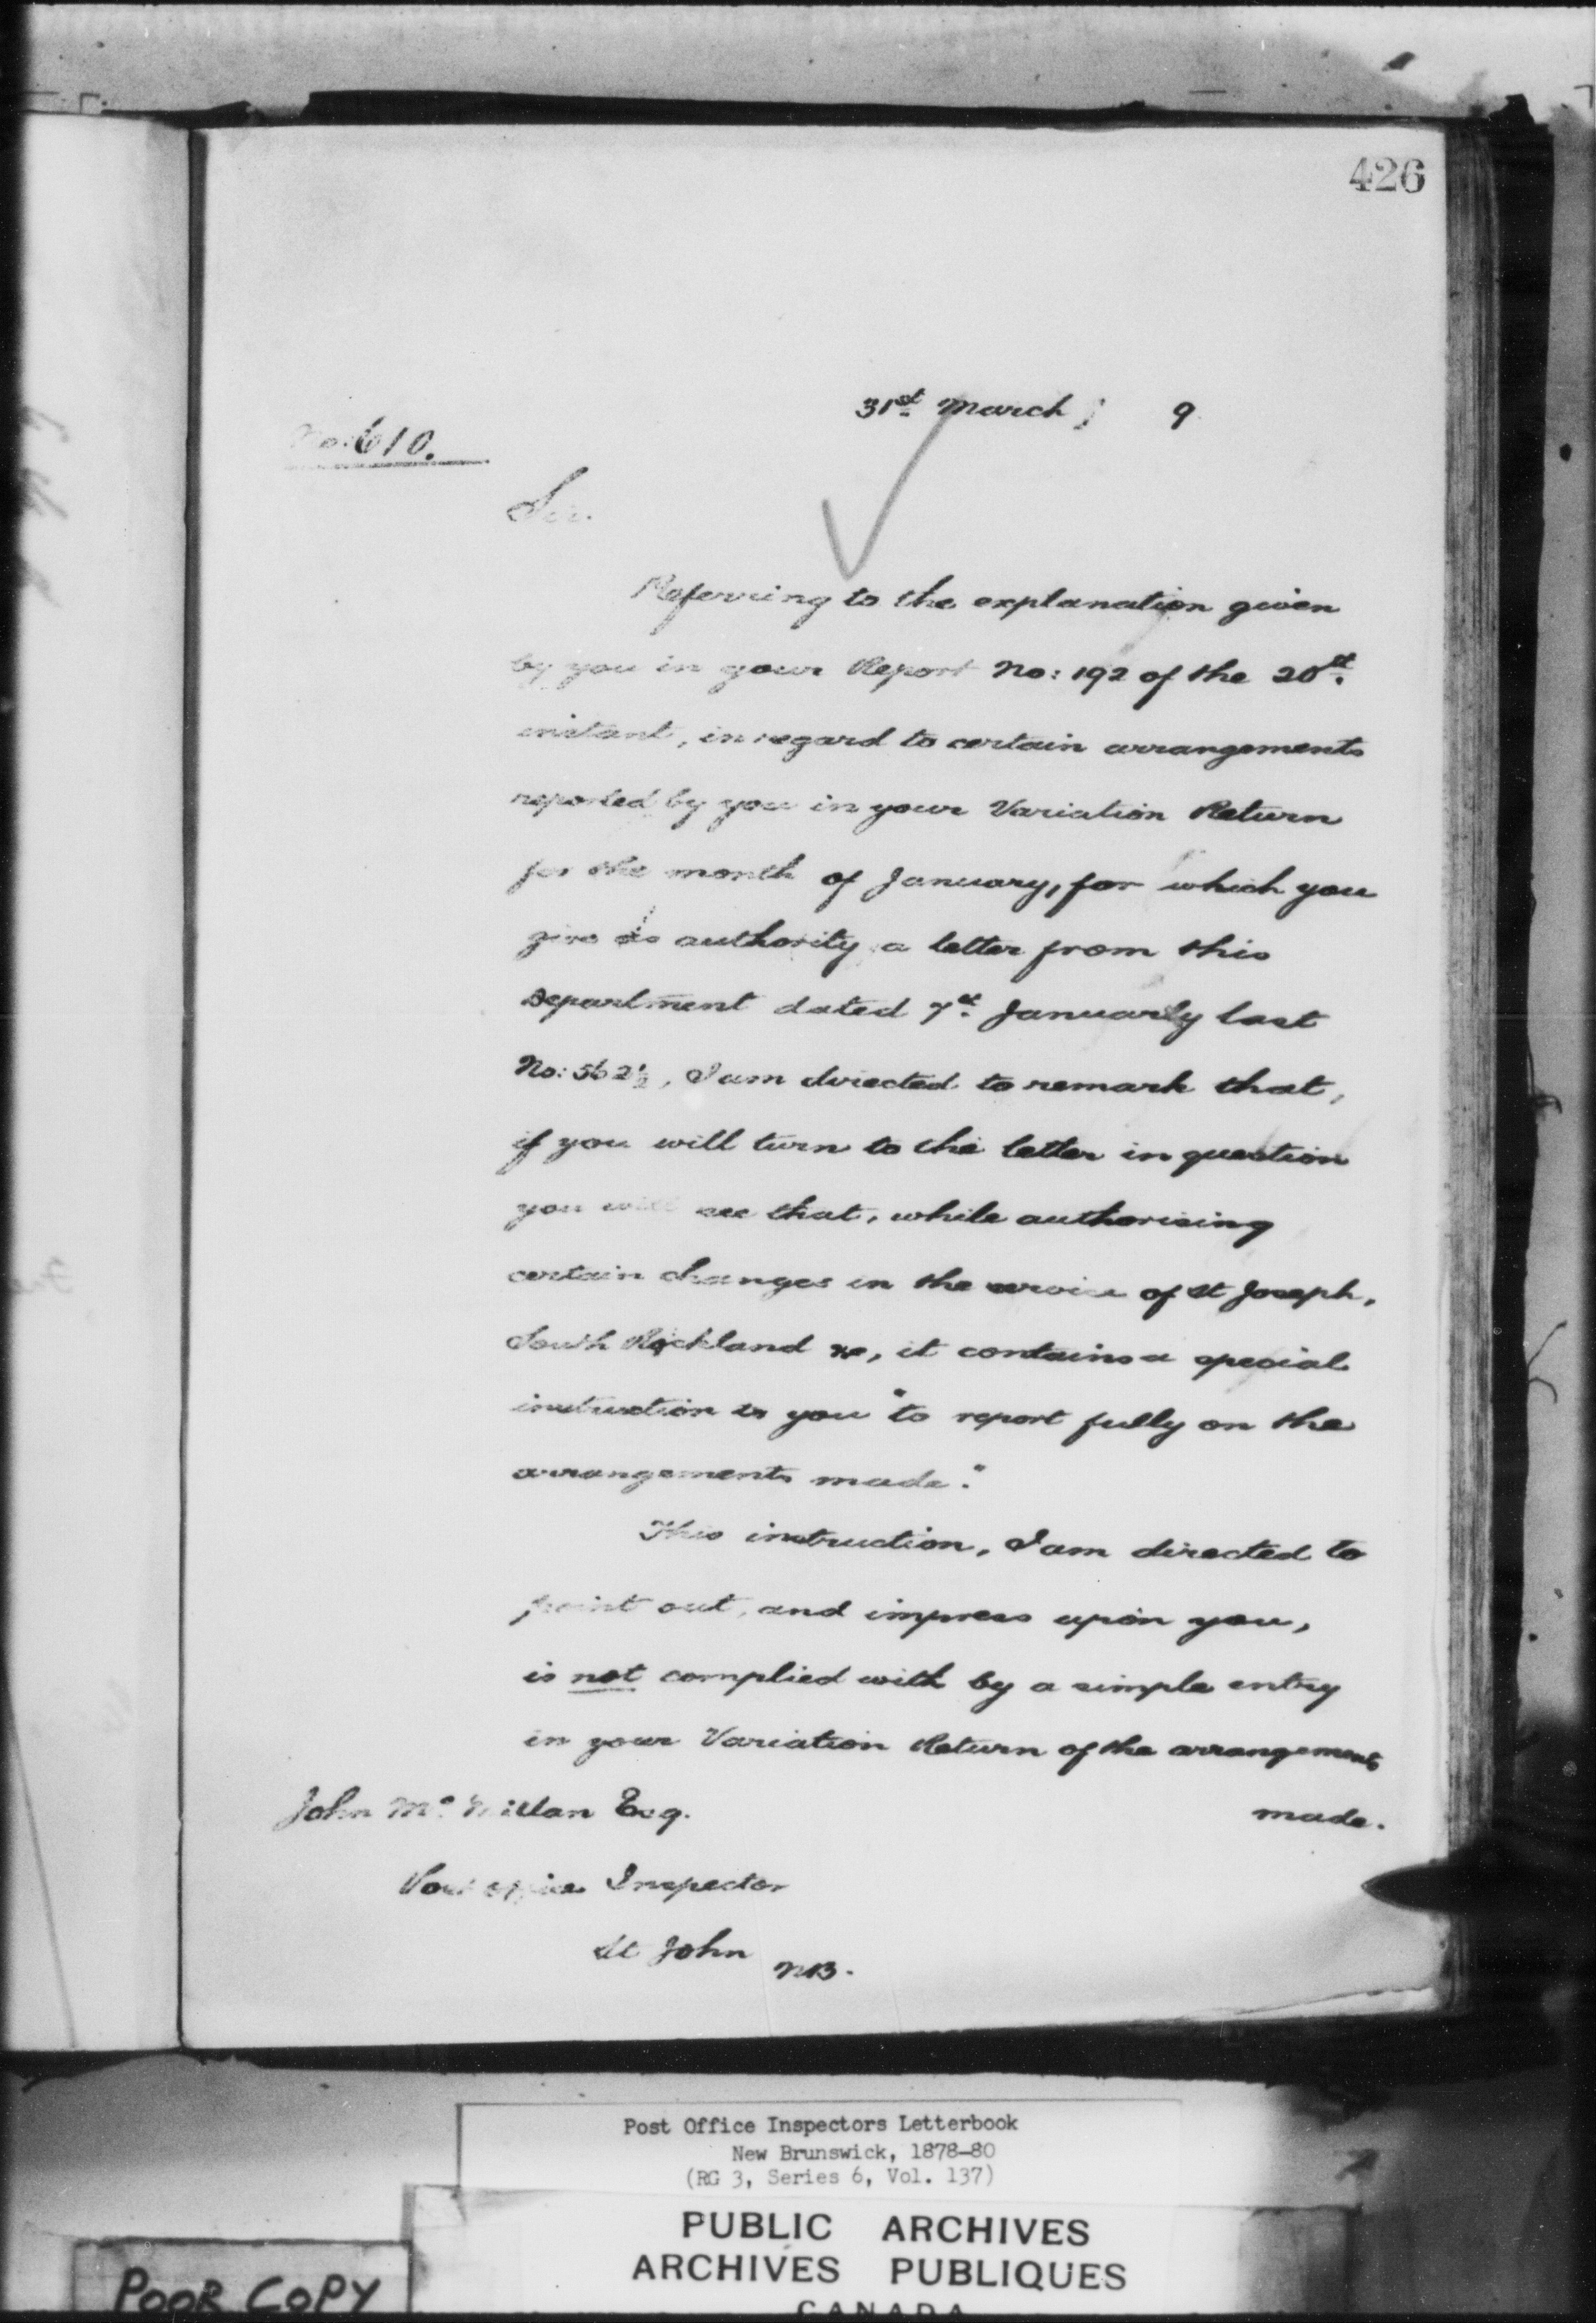 426
31st March 9
No: 610.
Sir.
Referring to the explanation given
by you in your Report No: 192 of the 20th
instant, in regard to certain arrangements
reported by you in your Variation Return
for the month of January, for which you
give as authority a letter from this
Department dated 7th January last
No: 562½, I am directed to remark that,
if you will turn to the letter in question
you will see that, while authorising
certain changes in the service of St Joseph,
South Rockland &c, it contains a special
instruction to you "to report fully on the
arrangements made."
This instruction, I am directed to
point out, and impress upon you,
is not complied with by a simple entry
in your Variation Return of the arrangements
made.
John McMillan Esq.
Post Office Inspector
St John NB.
Post Office Inspectors Letterbook
New Brunswick, 1878-80
(RG 3, Series 6, Vol. 137)
PUBLIC ARCHIVES
ARCHIVES PUBLIQUES
CANADA
POOR COPY